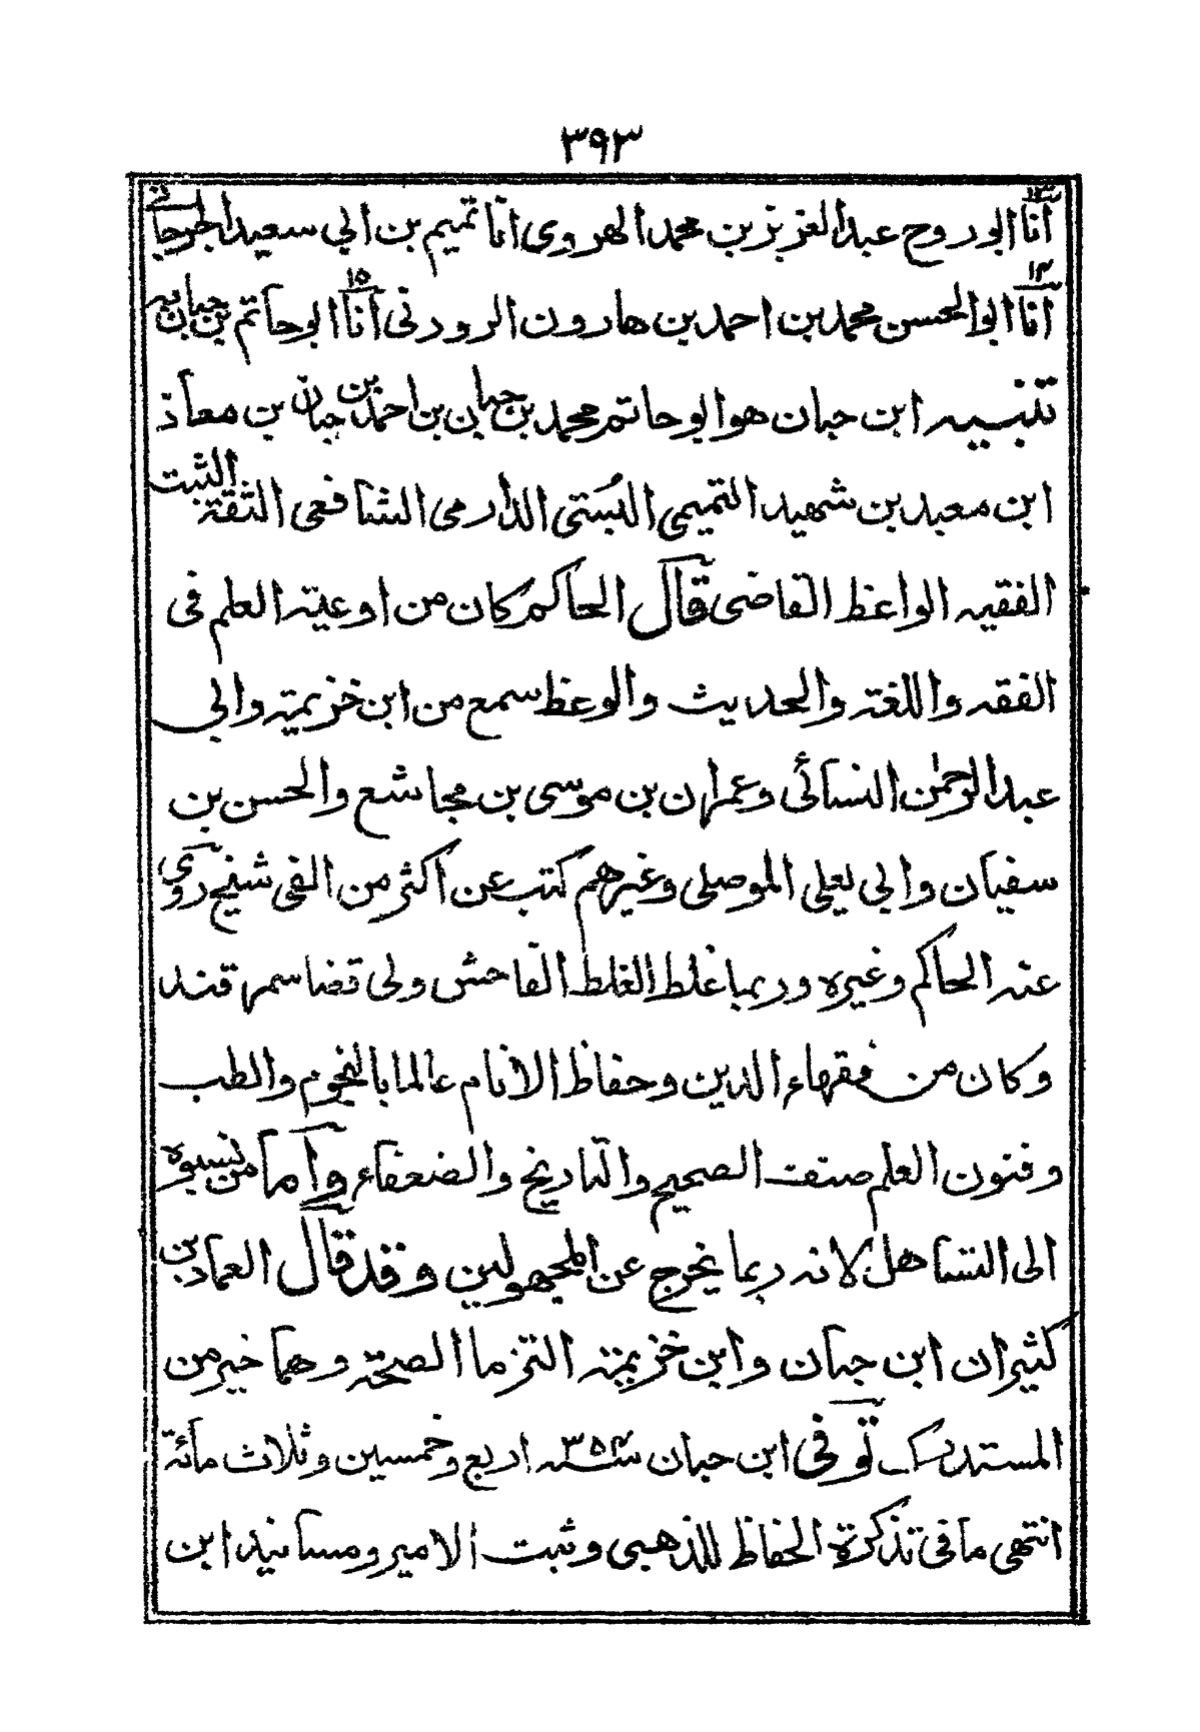 ٣٩٣
انا ابو روح عبد العزيز بن محمد الهروى انا تميم بن ابي سعيد الجرجانى
١٤ انا ابو الحسن محمد بن احمد بن هارون الرودنى ١٥ انا ابو حاتم بن حبان به
تنبيه ابن حبان هو ابو حاتم محمد بن حبان بن احمد بن حبان بن معاذ
ابن معبد بن شهيد التميمي البُستى الدارمى الشافعى الثقة الثبت
الفقيه الواعظ القاضى قال الحاكم كان من اوعية العلم فى
الفقه واللغة والحديث والوعظ سمع من ابن خزيمة وابي
عبد الرحمٰن النسائى وعمران بن موسى بن مجاشع والحسن بن
سفيان وابي يعلى الموصلى وغيرهم كتب عن اكثر من الفى شيخ روى
عنه الحاكم وغيره وربما غلط الغلط الفاحش ولى قضا سمرقند
وكان من فقهاء الدين وحفاظ الانام عالما بالنجوم والطب
وفنون العلم صنف الصحيح والتاريخ والضعفاء واما من نسبوه
الى التساهل لانه ربما يخرج عن المجهولين وقد قال العماد بن
كثير ان ابن حبان وابن خزيمة التزما الصحة وهما خير من
المستدرك توفى ابن حبان سنه ٣٥٤ اربع وخمسين وثلاث مائة
انتهى ما فى تذكرة الحفاظ للذهبى وثبت الامير ومسانيد ابن